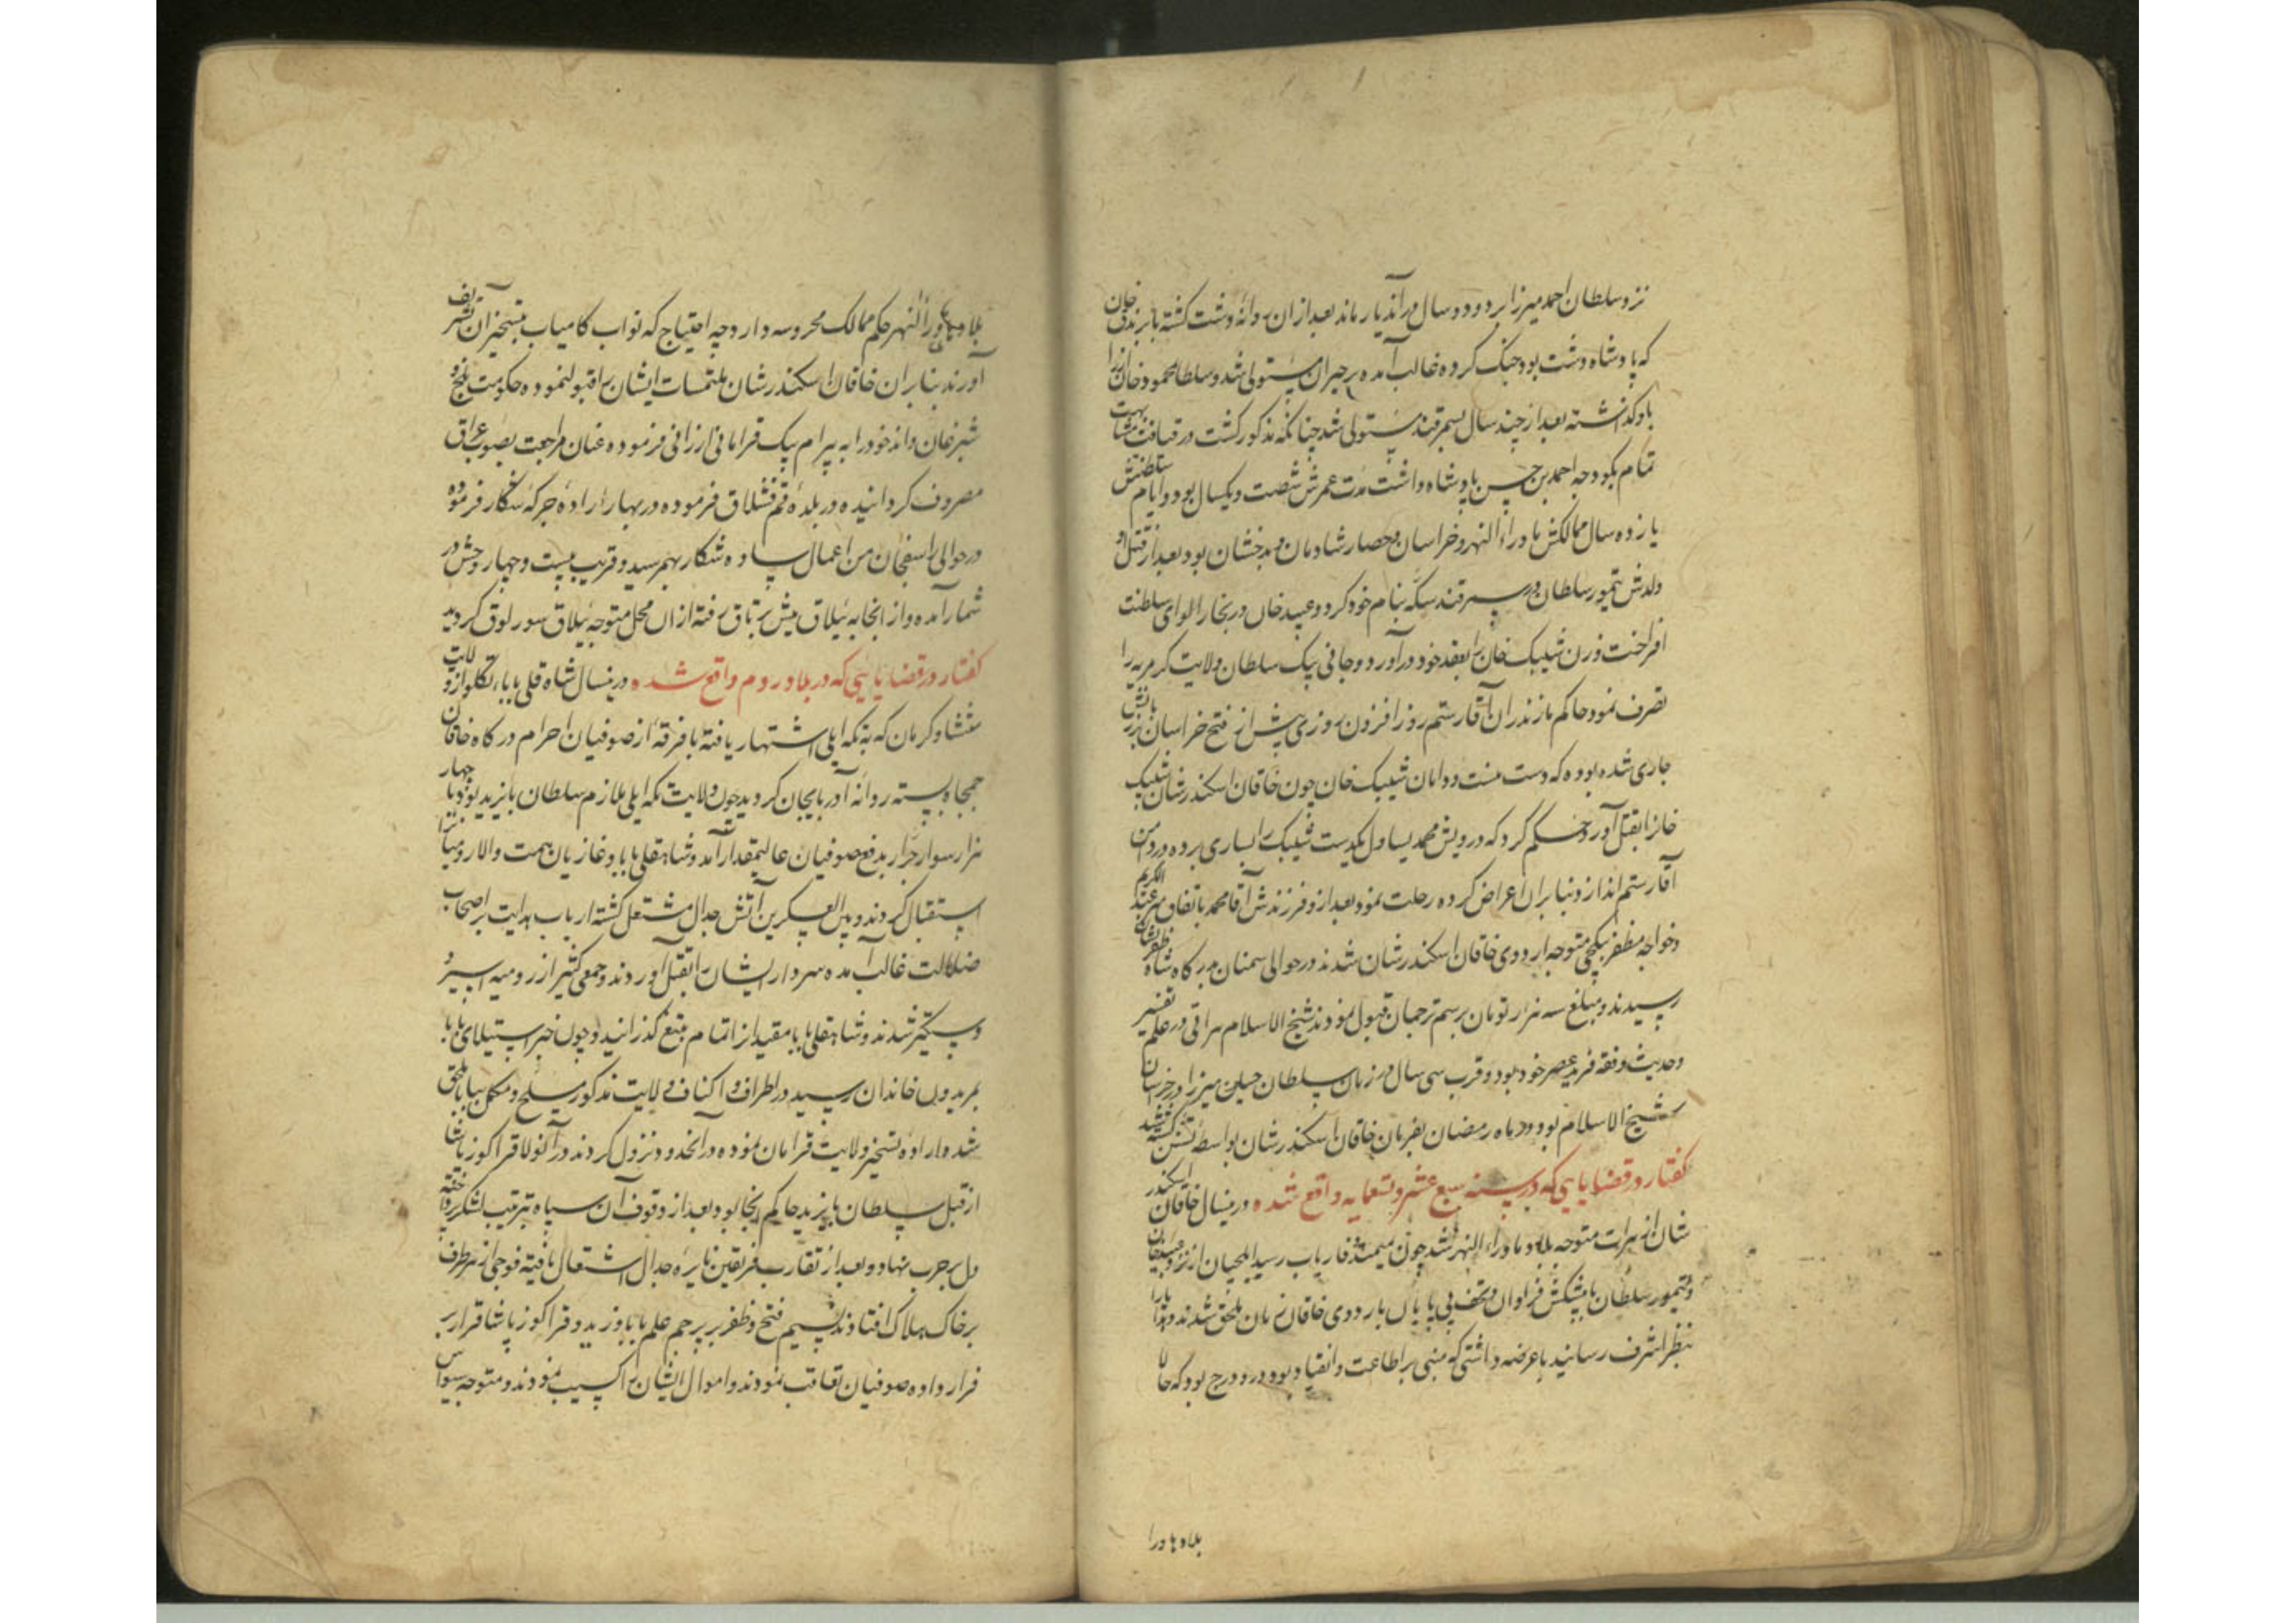 نزد سلطان احمد میرزا برد و دو سال در آن دیار ماند بعد از ان روانهٔ دشت کشته با برندق خان
که پادشاه دشت بود جنک کرده غالب آمده بر جیران مستولی شد و سلطان محمود خان انرا
باو کذاشته بعد از چند سال بسمرقند مستولی شد چنانکه مذکور کشت در قیافت مشابهت
تمام بکودجه احمد بن حسن پادشاه داشت مدت عمرش شصت و یکسال بود و ایام سلطنتش
یازده سال ممالکش ماوراء النهر و خراسان و حصار شادمان و بدخشان بود بعد از قتل او
ولدش تیمور سلطان در سمرقند سکه بنام خود کرد و عبید خان در بخارا لوای سلطنت
افراخت و زن شیبک خان را بعقد خود در آورد و جانی بیک سلطان ولایت کرمریه را
تصرف نمود حاکم مازندران آقا رستم روز افزون روزی پیش از فتح خراسان بر زبانش
جاری شده بوده که دست منست و دامان شیبک خان چون خاقان اسکندر شان شیبک
خانرا بقتل آورد حکم کرد که درویش محمد یساول یکدست شیبک را بساری برده در دامن
آقا رستم اندازد بنابران اعراض کرده رحلت نمود بعد ازو فرزندش آقا محمد باتفاق میر عبد الکریم
و خواجه مظفر بیکچی متوجه اردوی خاقان اسکندر شان شدند در حوالی سمنان بدرکاه شاه ظفر نشان
رسیدند و مبلغ سه هزار تومان برسم ترجمان قبول نمودند شیخ الاسلام هراتی در علم تفسیر
و حدیث و فقه فرید عصر خود بود و قرب سی سال در زمان سلطان حسین میرزا در خراسان
شیخ الاسلام بود در ماه رمضان بفرمان خاقان اسکندر شان بواسطهٔ تسنن کشته شد
کفتار در قضایایی که در سنه سبع عشر و تسعمایه واقع شده درینسال خاقان اسکندر
شان از هرات متوجه بلاد ماوراء النهر شد چون بمیمنه و فاریاب رسید ایلچیان از نزد عبید خان
و تیمور سلطان با پیشکش فراوان و تحف بی پایان باردوی خاقان زمان ملحق شدند و هدایا را
بنظر اشرف رسانید با عرضه داشتی که مبنی بر اطاعت و انقیاد بود درو درج بود که حالا
بلاد ماورا
بلاد ماوراء النهر حکم ممالک محروسه دارد چه احتیاج که نواب کامیاب بتسخیر ان تشریف
آورند بنابران خاقان اسکندر شان ملتمسات ایشان را قبول نموده حکومت بلخ و
شبرغان و اندخود را به بیرام بیک قرامانی ارزانی فرموده عنان مراجعت بصوب عراق
مصروف کردانیده در بلدهٔ قم قشلاق فرموده در بهار ارادهٔ جرکهٔ شکار فرموده
در حوالی اسفجان من اعمال ساوه شکار بهم رسید و قریب بیست و چهار وحش در
شمار آمده و از انجا به ییلاق میش برتاق رفته از ان محل متوجه ییلاق سورلوق کردید
کفتار در قضایایی که در بلاد روم واقع شده درینسال شاه قلی بابا تکلو از ولایت
منتشا و کرمان که به تکه ایلی اشتهار یافته با فرقه از صوفیان احرام درکاه خاقان
جمجاه بسته روانه آذربایجان کردید چون ولایت تکه ایلی ملازم سلطان بایزید بود با چهار
هزار سوار جرار بدفع صوفیان عالیمقدار آمد و شاهقلی بابا و غازیان بهمت والا رومیانرا
استقبال کردند و بین العسکرین آتش جدال مشتعل کشته ارباب هدایت بر اصحاب
ضلالت غالب آمده سردار ایشان را بقتل آوردند و جمعی کثیر از رومیه اسیر و
دستکیر شدند و شاهقلی بابا مقید انرا تمام بتیغ کذرانید و چون خبر استیلای بابا
بمریدون خاندان رسید در اطراف و اکناف ولایت مذکور مسلح و مکمل ببابا ملحق
شد و ارادهٔ تسخیر ولایت قرامان نموده در انحدود نزول کردند در آنولا قراکوز پاشا
از قبل سلطان بایزید حاکم انجا بود بعد از وقوف آن سپاه ترتیب لشکر
دل بر حرب نهاد و بعد از تقارب فریقین نایرهٔ جدال اشتعال یافته فوجی از هر طرف
بر خاک هلاک افتادند نسیم فتح و ظفر بر پرچم علم بابا وزید و قراکوز پاشا قرار بر
فرار داده صوفیان تعاقب نمودند و اموال ایشان را کسیب نمودند و متوجه سیواس